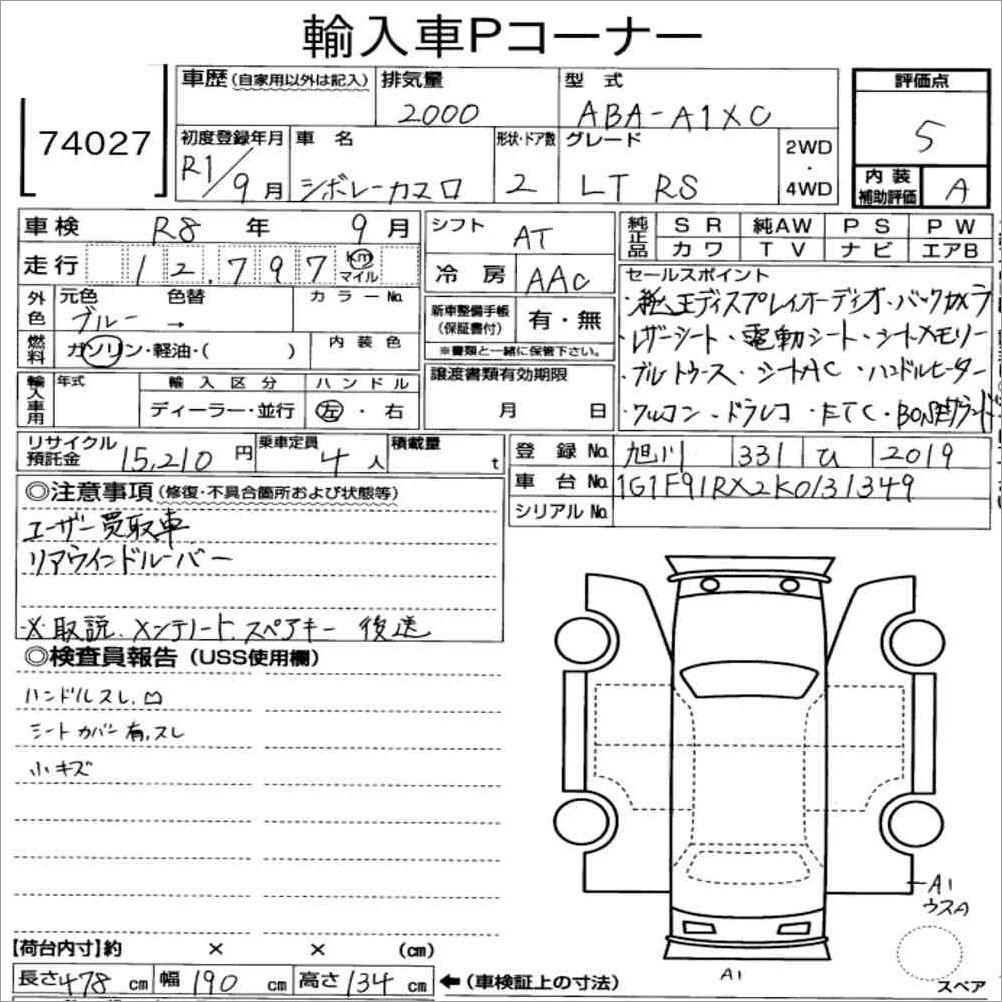 輸入車Pコーナー
74027
車歴(自家用以外は記入) 排気量 2000 型式 ABA-A1XC 評価点 5
初度登録年月 R1/9月 車名 シボレーカマロ 形状・ドア数 2 グレード LT RS 2WD・4WD 内装補助評価 A
車検 R8年 9月 シフト AT 純正品 SR 純AW PS PW
走行 12,797 km マイル 冷房 AAC カワ TV ナビ エアB
外色 元色 ブルー 色替 → カラーNo. 新車整備手帳(保証書付) 有・無 ※書類と一緒に保管下さい。
燃料 ガソリン・軽油・( ) 内装色
輸入車用 年式 輸入区分 ディーラー・並行 ハンドル 左・右 譲渡書類有効期限 月 日
セールスポイント
・純正ディスプレイオーディオ・バックカメラ
・レザーシート・電動シート・シートメモリー
・ブルートゥース・シートAC・ハンドルヒーター
・ワルコン・ドラレコ・ETC・BOSE
リサイクル預託金 15,210円 乗車定員 4人 積載量 t
登録No. 旭川 331 ひ 2019
車台No. 1G1F91RX2K0131349
シリアルNo.
◎注意事項(修復・不具合箇所および状態等)
ユーザー買取車
リアウインドルーバー
※取説、メンテノート、スペアキー 後送
◎検査員報告(USS使用欄)
ハンドルスレ、凹
シートカバー有、スレ
小キズ
A1
ウスA
A1
スペア
【荷台内寸】約 × × (cm)
長さ478cm 幅190cm 高さ134cm ←(車検証上の寸法)